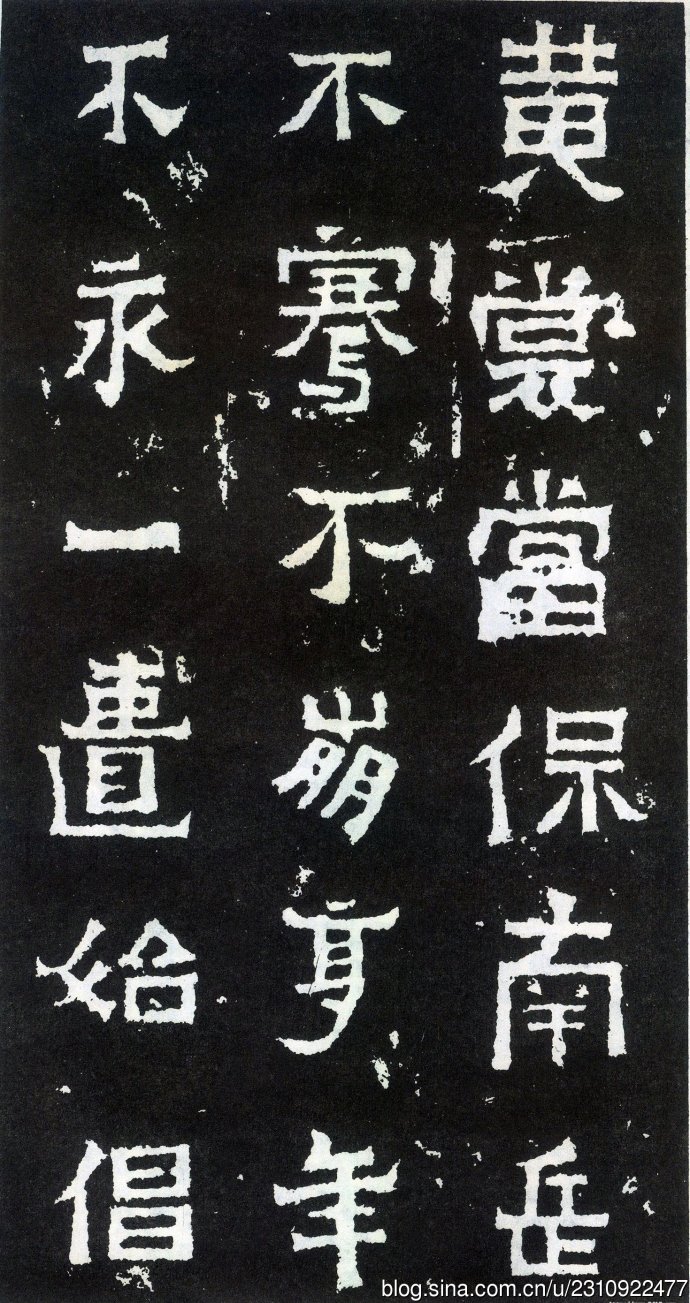 黄裳當保南岳
不騫不崩享年
不永一晝始倡
blog.sina.com.cn/u/2310922477